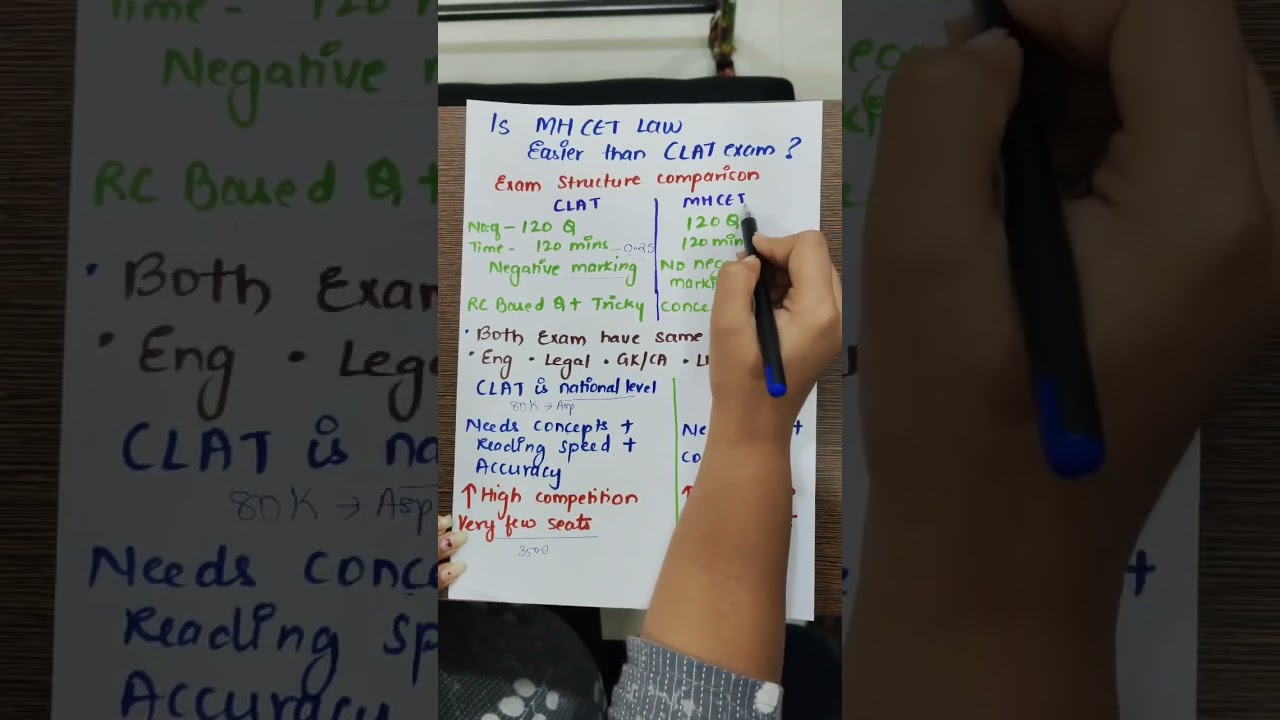 Is MH CET Law
Easier than CLAT exam ?
Exam Structure comparison
CLAT
MHCET
No.q - 120 Q
120 Q
Time - 120 mins -0.25
120 min
Negative marking
No neg
mark
RC Based Q + Tricky
conce
• Both Exam have same
• Eng • Legal • GK/CA •
CLAT is national level
80K → Asp
Needs concepts +
Reading speed +
Accuracy
Ne +
co
↑ High competition
↑
Very few seats
3500